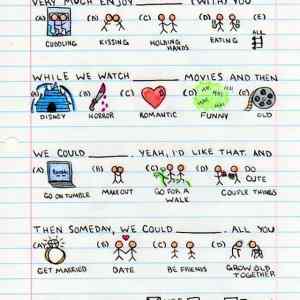 VERY MUCH ENJOY ________ (WITH) YOU
(A) (B) (C) (D) (E)
CUDDLING KISSING HOLDING HANDS EATING ALL
WHILE WE WATCH ________ MOVIES AND THEN
(A) (B) (C) (D) (E)
DISNEY HORROR ROMANTIC FUNNY OLD
WE COULD ________. YEAH, I'D LIKE THAT. AND
(A) (B) (C) (D) DO CUTE
GO ON TUMBLR MAKEOUT GO FOR A WALK COUPLE THINGS
THEN SOMEDAY, WE COULD ________. ALL YOU
(A) (B) (C) (D)
GET MARRIED DATE BE FRIENDS GROW OLD TOGETHER